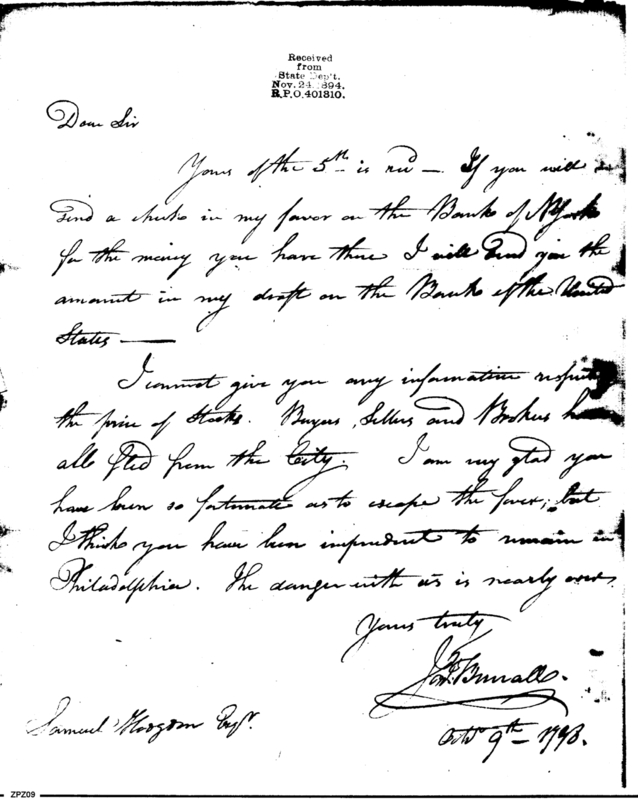 Received
from
State Dep't.
Nov. 24. 1894.
R.P.O. 401310.
Dear Sir
Yours of the 5th is recd — If you will
send a check in my favor on the Bank of NYork
for the money you have there I will send you the
amount in my draft on the Bank of the United
States —
I cannot give you any information respecting
the price of Stocks. Buyers, Sellers and Brokers have
all fled from the City. I am very glad you
have been so fortunate as to escape the fever; but
I think you have been imprudent to remain in
Philadelphia. The danger with us is nearly over
Yours truly
Jon. Burrall.
Samuel Hodgdon Esqr.
Octo. 9th — 1798.
ZPZ09